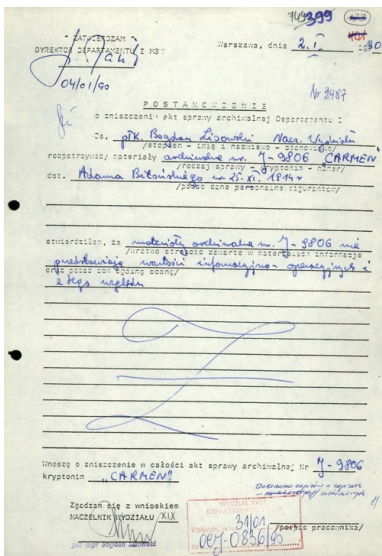 399
ZATWIERDZAM
DYREKTOR DEPARTAMENTU I MSW
04/01/90
Warszawa, dnia 2.I. 1990
Nr 2987
POSTANOWIENIE
o zniszczeniu akt sprawy archiwalnej Departamentu I
Ja, płk. Bogdan Lisowski Nacz. Wydziału
/stopień - imię i nazwisko - stanowisko/
rozpatrzywszy materiały archiwalne nr. J-9806 CARMEN
/rodzaj sprawy - kryptonim - numer/
dot. Adama Bitońskiego ur. 25.XI. 1914 r
/podać dane personalne figurantów/
stwierdziłem, że materiały archiwalne nr. J-9806 nie
/krótko streścić zawarte w materiałach informacje
przedstawiają wartości informacyjno-operacyjnych i
oraz podać ich ogólną ocenę/
z tego względu
Wnoszę o zniszczenie w całości akt sprawy archiwalnej Nr J-9806
kryptonim "CARMEN"
Zgadzam się z wnioskiem
NACZELNIK WYDZIAŁU XIX
płk mgr Bogdan Lisowski
DEPARTAMENTU I
31/01
/podpis pracownika/